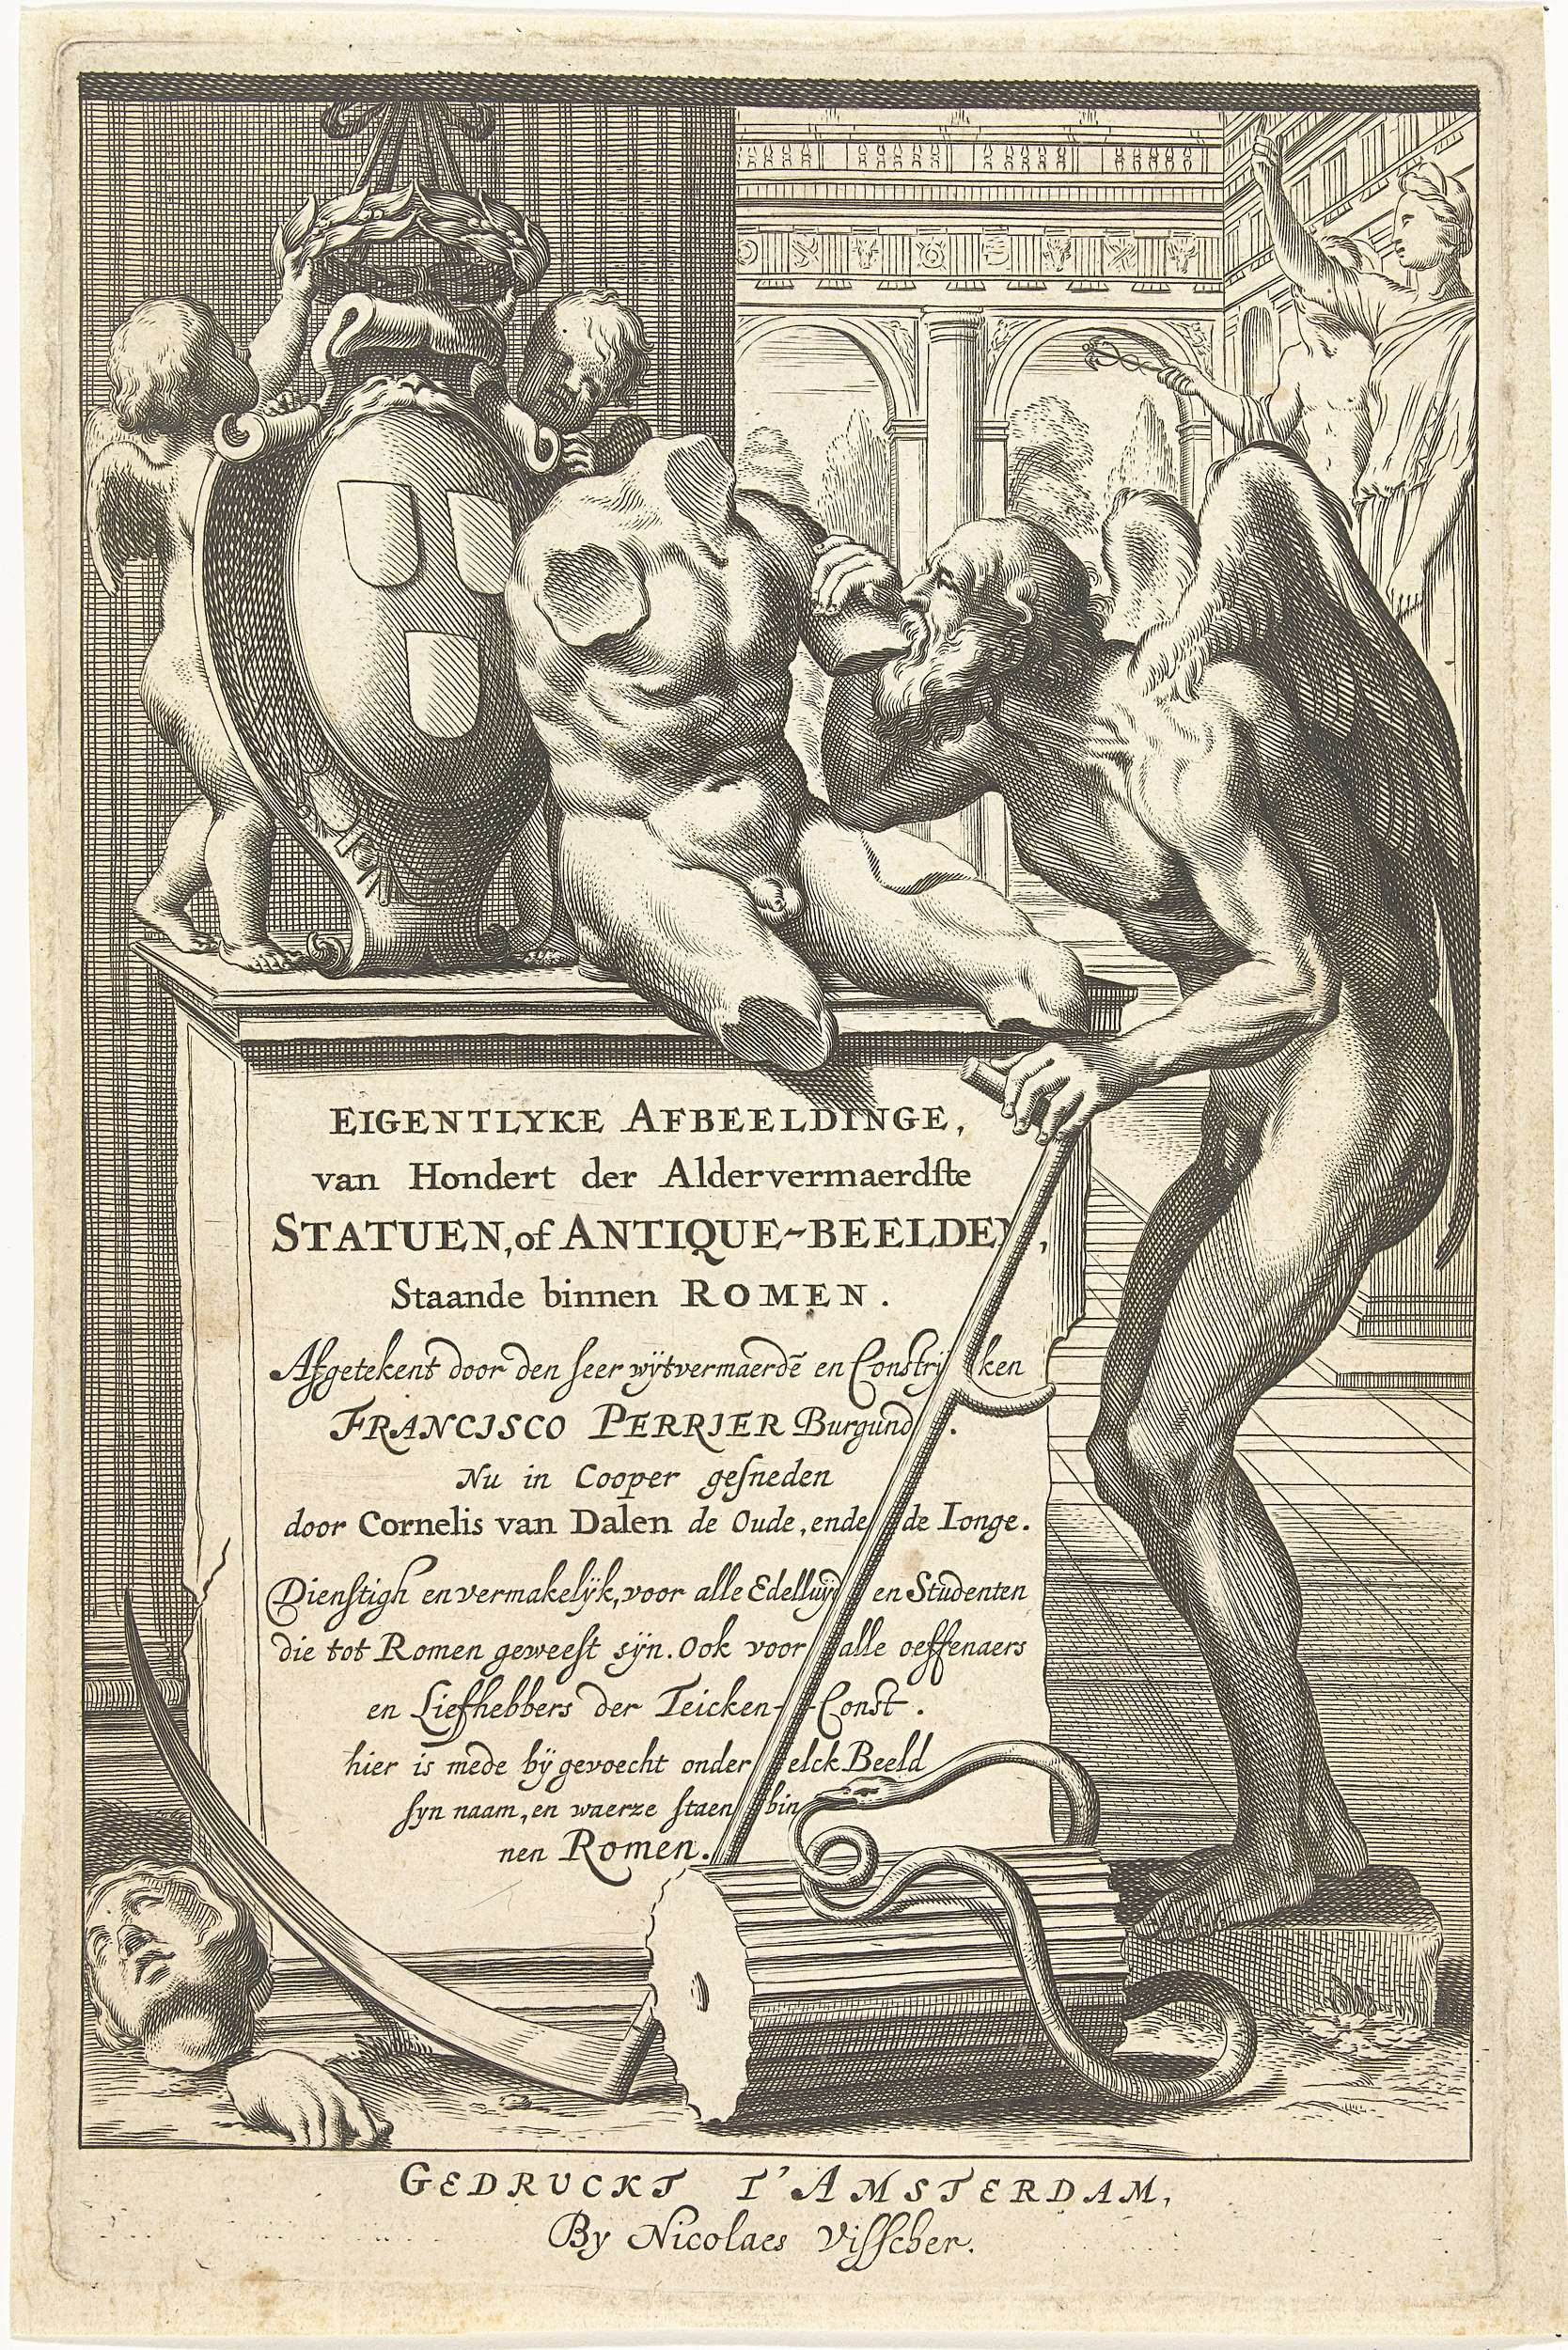 EIGENTLYKE AFBEELDINGE,
van Hondert der Aldervermaerdſte
STATUEN, of ANTIQUE-BEELDEN,
Staande binnen ROMEN.
Afgetekent door den ſeer wÿtvermaerdē en Constrijken
FRANCISCO PERRIER Burgund.
Nu in Cooper geſneden
door Cornelis van Dalen de Oude, ende de Ionge.
Dienſtigh en vermakelÿk, voor alle Edelluÿd en Studenten
die tot Romen geweeſt sÿn. Ook voor alle oeffenaers
en Liefhebbers der Teicken-Const.
hier is mede bÿ gevoecht onder elck Beeld
ſyn naam, en waerze ſtaen bin
nen Romen.
GEDRUCKT T'AMSTERDAM,
By Nicolaes Viſſcher.